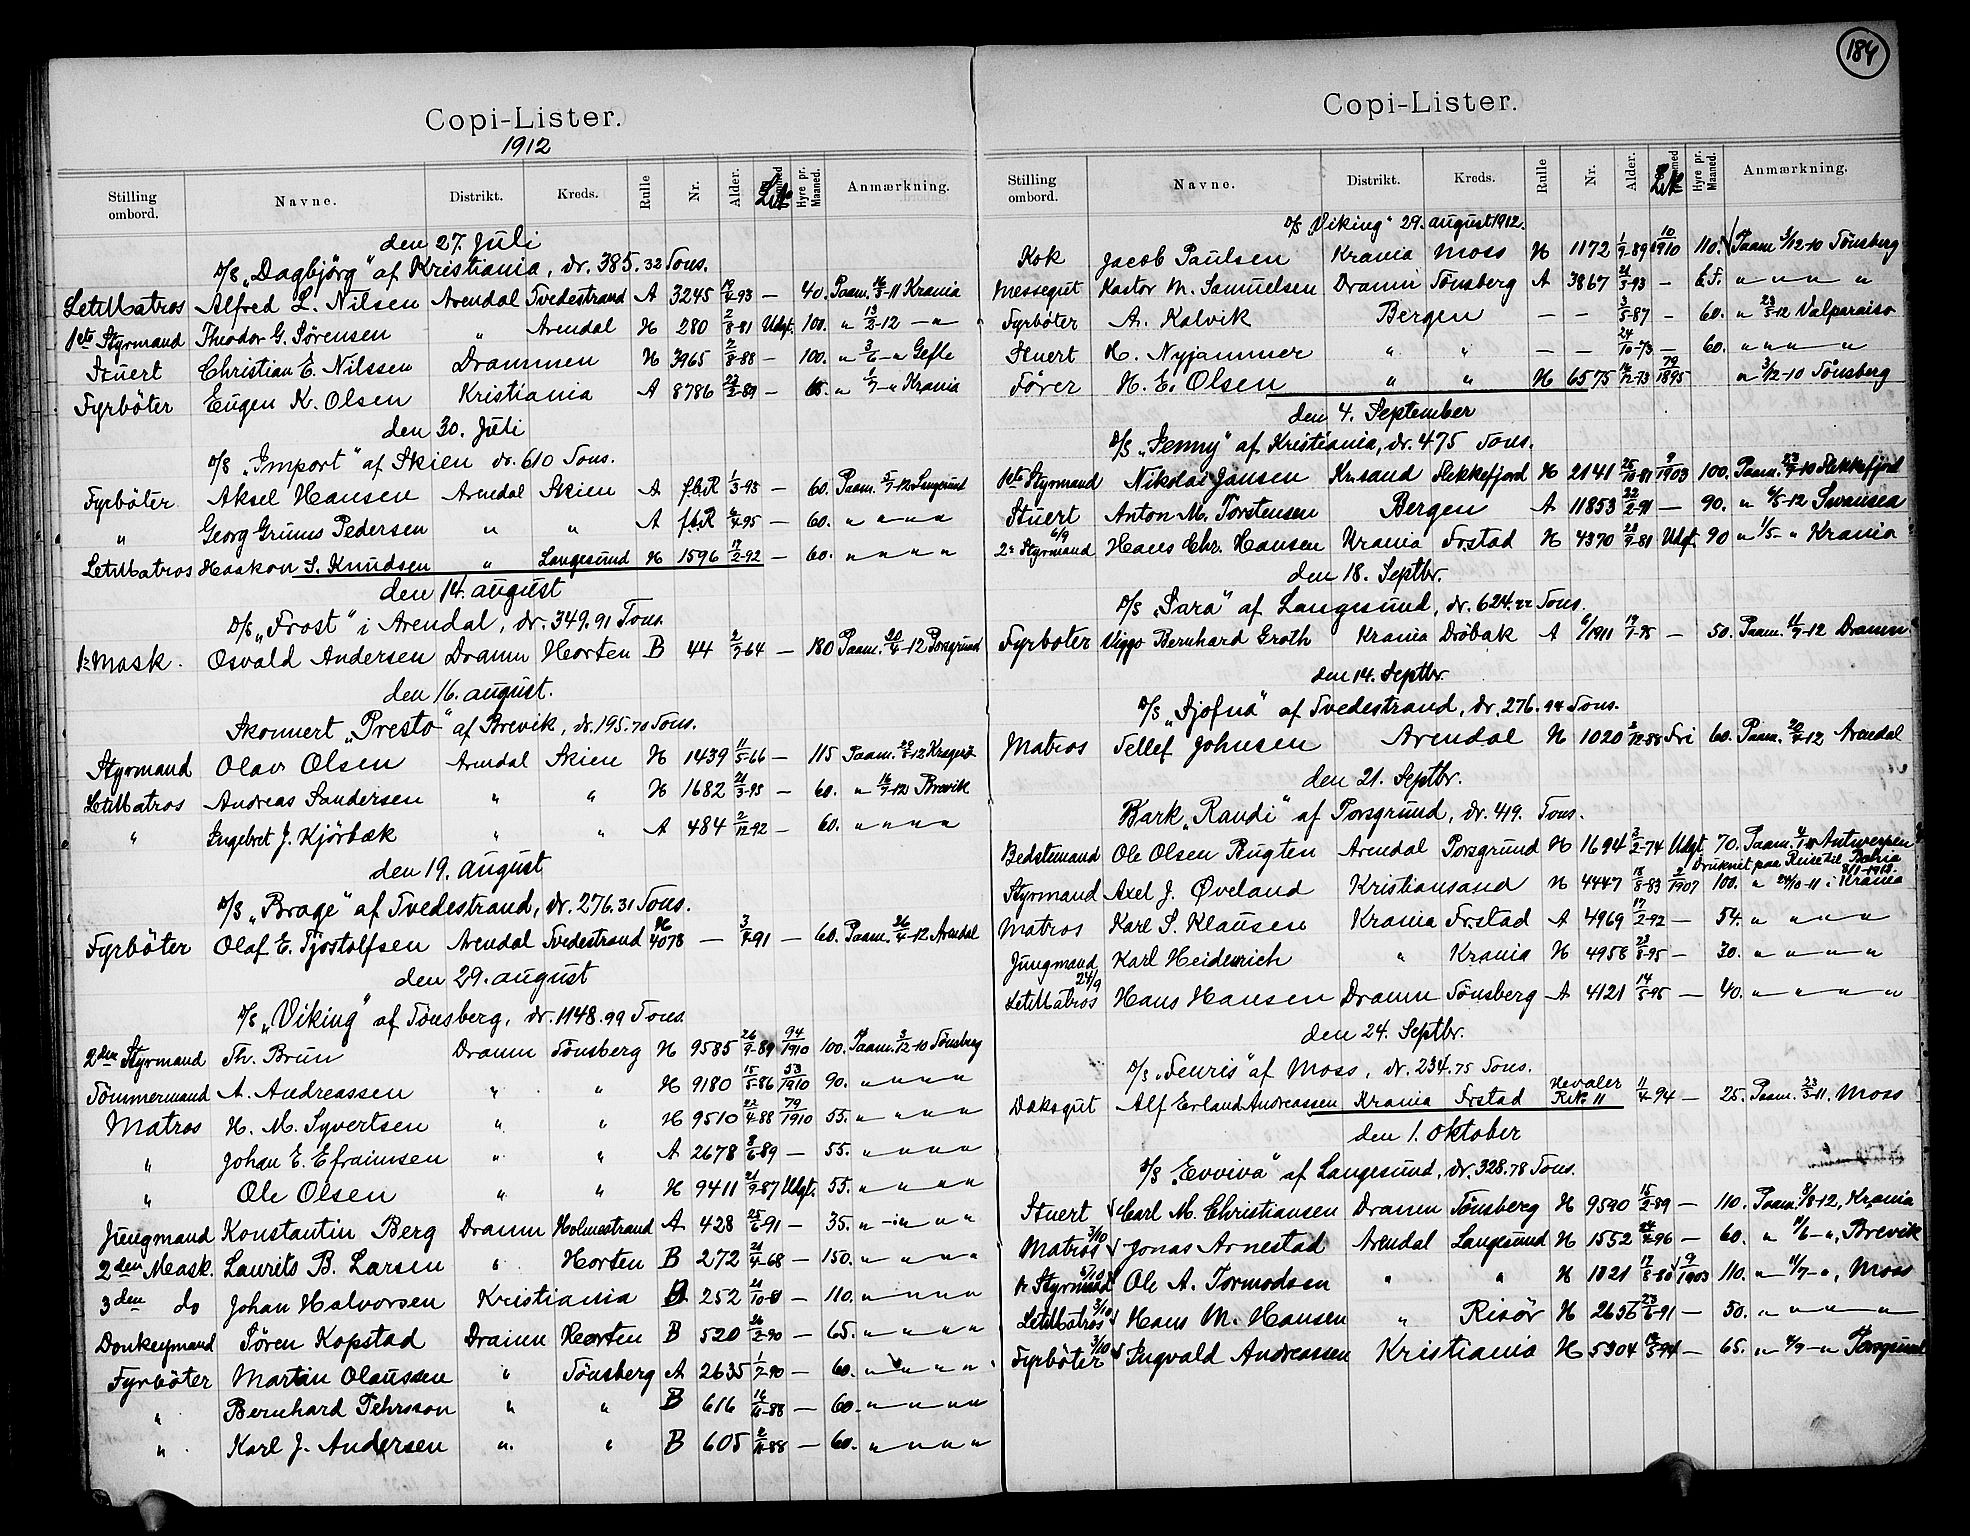 184
Copi-Lister.
1912
Stilling ombord. Navne. Distrikt. Kreds. Rulle Nr. Alder. Hyre pr. Maaned. Anmærkning.
den 27. Juli
D/S „Dagbjörg" af Kristiania, dr. 385.32 Tons.
LetMatros Alfred L. Nilsen Arendal Tvedestrand A 3245 — 40. Paam. Krania
1ste Styrmand Theodor G. Sørensen " Arendal H 280 2/8-81 Udgt. 100. " 13/2-12 — " —
Stuert Christian E. Nilssen Drammen H 3965 2/8-88 — 100. " 3/6 - " Gefle
Fyrböter Eugen K. Olsen Kristiania A 8786 22/2-89 — 65. " 1/7 - " Krania
den 30. Juli
D/S „Import" af Skien dr. 610 Tons.
Fyrböter Aksel Hansen Arendal Skien A f.b.R 1/3-93 — 60. Paam. 5/7-12 Langesund
" Georg Gruuss Pedersen " " A f.b.R 6/4-95 — 60. " " " "
LetMatros Haakon S. Knudsen " Langesund H 1596 17/2-92 — 60. " " " "
den 14. august
D/S „Frost" i Arendal, dr. 349.91 Tons.
1ste Mask. Osvald Andersen Dramn Horten B 44 2/7-64 — 180 Paam. 30/4-12 Porsgrund
den 16. august.
Skonnert „Presto" af Brevik, dr. 195.70 Tons.
Styrmand Olav Olsen Arendal Skien H 1439 11/5-66 — 115 Paam. Kragerö
LetMatros Andreas Sandersen " " H 1682 21/3-95 — 60. " 16/7-12 Brevik
" Ingebret J. Kjörbæk " " A 484 2/12-92 — 60. " " " "
den 19. august
D/S „Brage" af Tvedestrand, dr. 276.31 Tons.
Fyrböter Olaf E. Tjostolfsen Arendal Tvedestrand H 4078 — 3/4-91 — 60. Paam. 26/4-12 Arendal
den 29. august
D/S „Viking" af Tönsberg, dr. 1148.99 Tons.
2den Styrmand Th. Brun Dramn Tönsberg H 9585 26/9-89 94/1910 100. Paam. 3/12-10 Tönsberg
Tömmermand A. Andreassen " " H 9180 15/5-86 53/1910 90. " " " "
Matros H. M. Syvertsen " " H 9510 22/4-88 79/1910 55. " " " "
" Johan E. Efraimsen " " A 2678 8/6-89 — 55. " " " "
" Ole Olsen " " H 9411 21/9-87 Udgt. 55. " " " "
Jungmand Konstantin Berg Dramn Holmestrand A 428 25/6-91 — 35. " " " "
2den Mask. Laurits B. Larsen " Horten B 272 21/4-68 — 150. " " " "
3den do Johan Halvorsen Kristiania B 252 21/10-81 — 110. " " " "
Donkeymand Søren Kopstad Dramn Horten B 520 26/2-90 — 65. " " " "
Fyrböter Martin Olaussen " Tönsberg A 2635 1/7-90 — 60. " " " "
" Bernhard Tehrsson " " B 616 — 60. " " " "
" Karl J. Andersen " " B 605 — 60. " " " "
Copi-Lister.
Stilling ombord. Navne. Distrikt. Kreds. Rulle Nr. Alder. Hyre pr. Maaned. Anmærkning.
D/S „Viking" 29. august 1912.
Kok Jacob Paulsen Krania Moss H 1172 1/9-89 10/1910 110. Paam 3/12-10 Tönsberg
Messegut Kastor M. Samuelsen Dramn Tönsberg A 3867 21/3-93 — " " " "
Fyrböter A. Kalvik Bergen — — 3/5-87 — 60. " 23/5-12 Valparaiso
Stuert H. Nyjammer " " — — 24/10-73 — 60. " " " "
Fører H. E. Olsen " " H 6575 79/1895 " 3/12-10 Tönsberg
den 4. September
D/S „Jenny" af Kristiania, dr. 475 Tons.
1ste Styrmand Nikolas Jansen Kr.sand Flekkefjord H 2141 25/10-81 9/1903 100. Paam. 23/7-10 Flekkefjord
Stuert Anton M. Torstensen Bergen A 11853 22/2-91 — 90. " 6/5-12 Swansea
6/9
2. Styrmand Hans Chr. Hansen Krania Fr.stad H 4370 Udgt. 90 " 1/5 - " Krania
den 18. Septbr.
D/S „Sara" af Langesund, dr. 624.22 Tons.
Fyrböter Viggo Bernhard Groth Krania Dröbak A 6/1911 — 50. Paam. 11/7-12 Dramn
den 14. Septbr.
D/S „Sjofna" af Tvedestrand, dr. 276.94 Tons.
Matros Tellef Johnsen Arendal H 1020 2/12-88 Fri 60. Paam. Arendal
den 21. Septbr.
Bark „Randi" af Porsgrund, dr. 419. Tons.
Bedstemand Ole Olsen Bugten Arendal Porsgrund H 1694 3/2-74 Udgt 70. Paam. Antwerpen
Druknet paa Reise til Bahia
Styrmand Axel J. Øveland Kristiansand H 4447 18/8-83 2/1907 100. " 24/10-11 i Krania
Matros Karl S. Klausen Krania Fr.stad A 4969 17/2-92 — 54. " " " "
Jungmand Karl Heidenrich " Krania H 4958 23/8-95 — 30. " " " "
24/9
LetMatros Hans Hansen Dramn Tönsberg A 4121 14/5-95 — 40. " " " "
den 24. Septbr.
D/S „Fenris" af Moss, dr. 234.75 Tons.
Dæksgut Alf Erland Andreassen Krania Fr.stad Hvaler Rk. 11 11/4-94 — 25. Paam. 23/3-11, Moss
den 1. Oktober
D/S „Evviva" af Langesund, dr. 328.78 Tons.
Stuert Carl M. Christiansen Dramn Tönsberg H 9590 15/2-89 — 110. Paam. 8/8-12, Krania
3/10
Matros Jonas Arnestad Arendal Langesund H 1552 — 60. " Brevik
5/10
1. Styrmand Ole A. Tormodsen " " H 1821 17/8-80 9/1903 110. " Moss
3/10
LetMatros Hans M. Hansen " Risör H 2656 23/6-91 — 50. " " " "
3/10
Fyrböter Ingvald Andreassen Kristiania H 5304 — 65. " Porsgrund